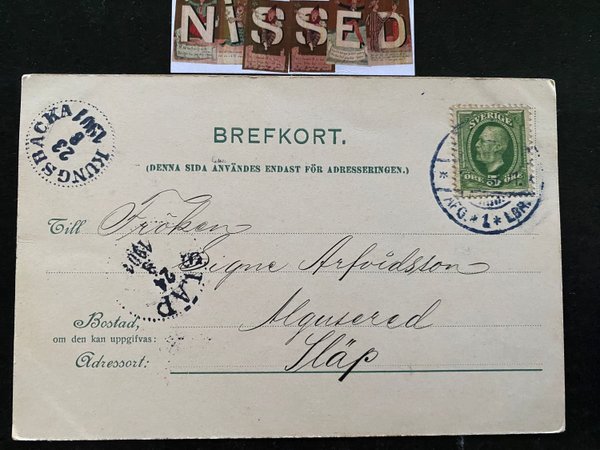 NISSED
BREFKORT.
(DENNA SIDA ANVÄNDES ENDAST FÖR ADRESSERINGEN.)
KUNGSBACKA
23
8
1901
SVERIGE
5
ÖRE ÖRE
*1*LBR.
Till Fröken
Signe Arfvidsson
SLÄP
24
1901
Bostad, Algusered
om den kan uppgifvas:
Adressort: Släp